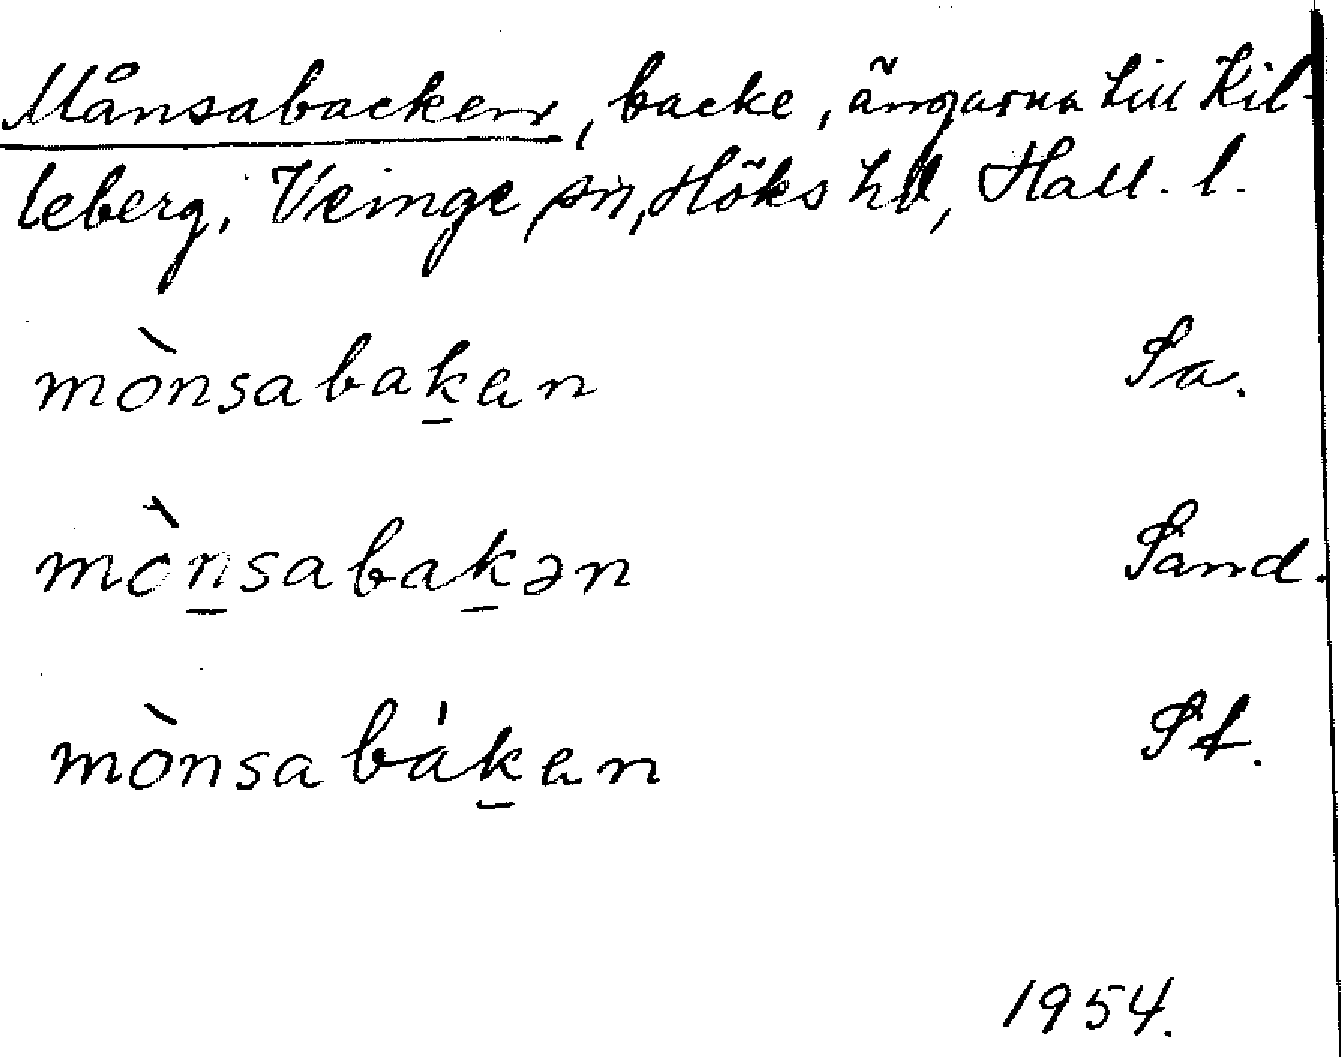 Månsabacken, backe, ängarna till Kil-
leberg, Veinge sn, Höks hd, Hall. l.
mònsabak̲en Sa.
mòn̲sabak̲ən Sand.
mònsabák̲en St.
1954.